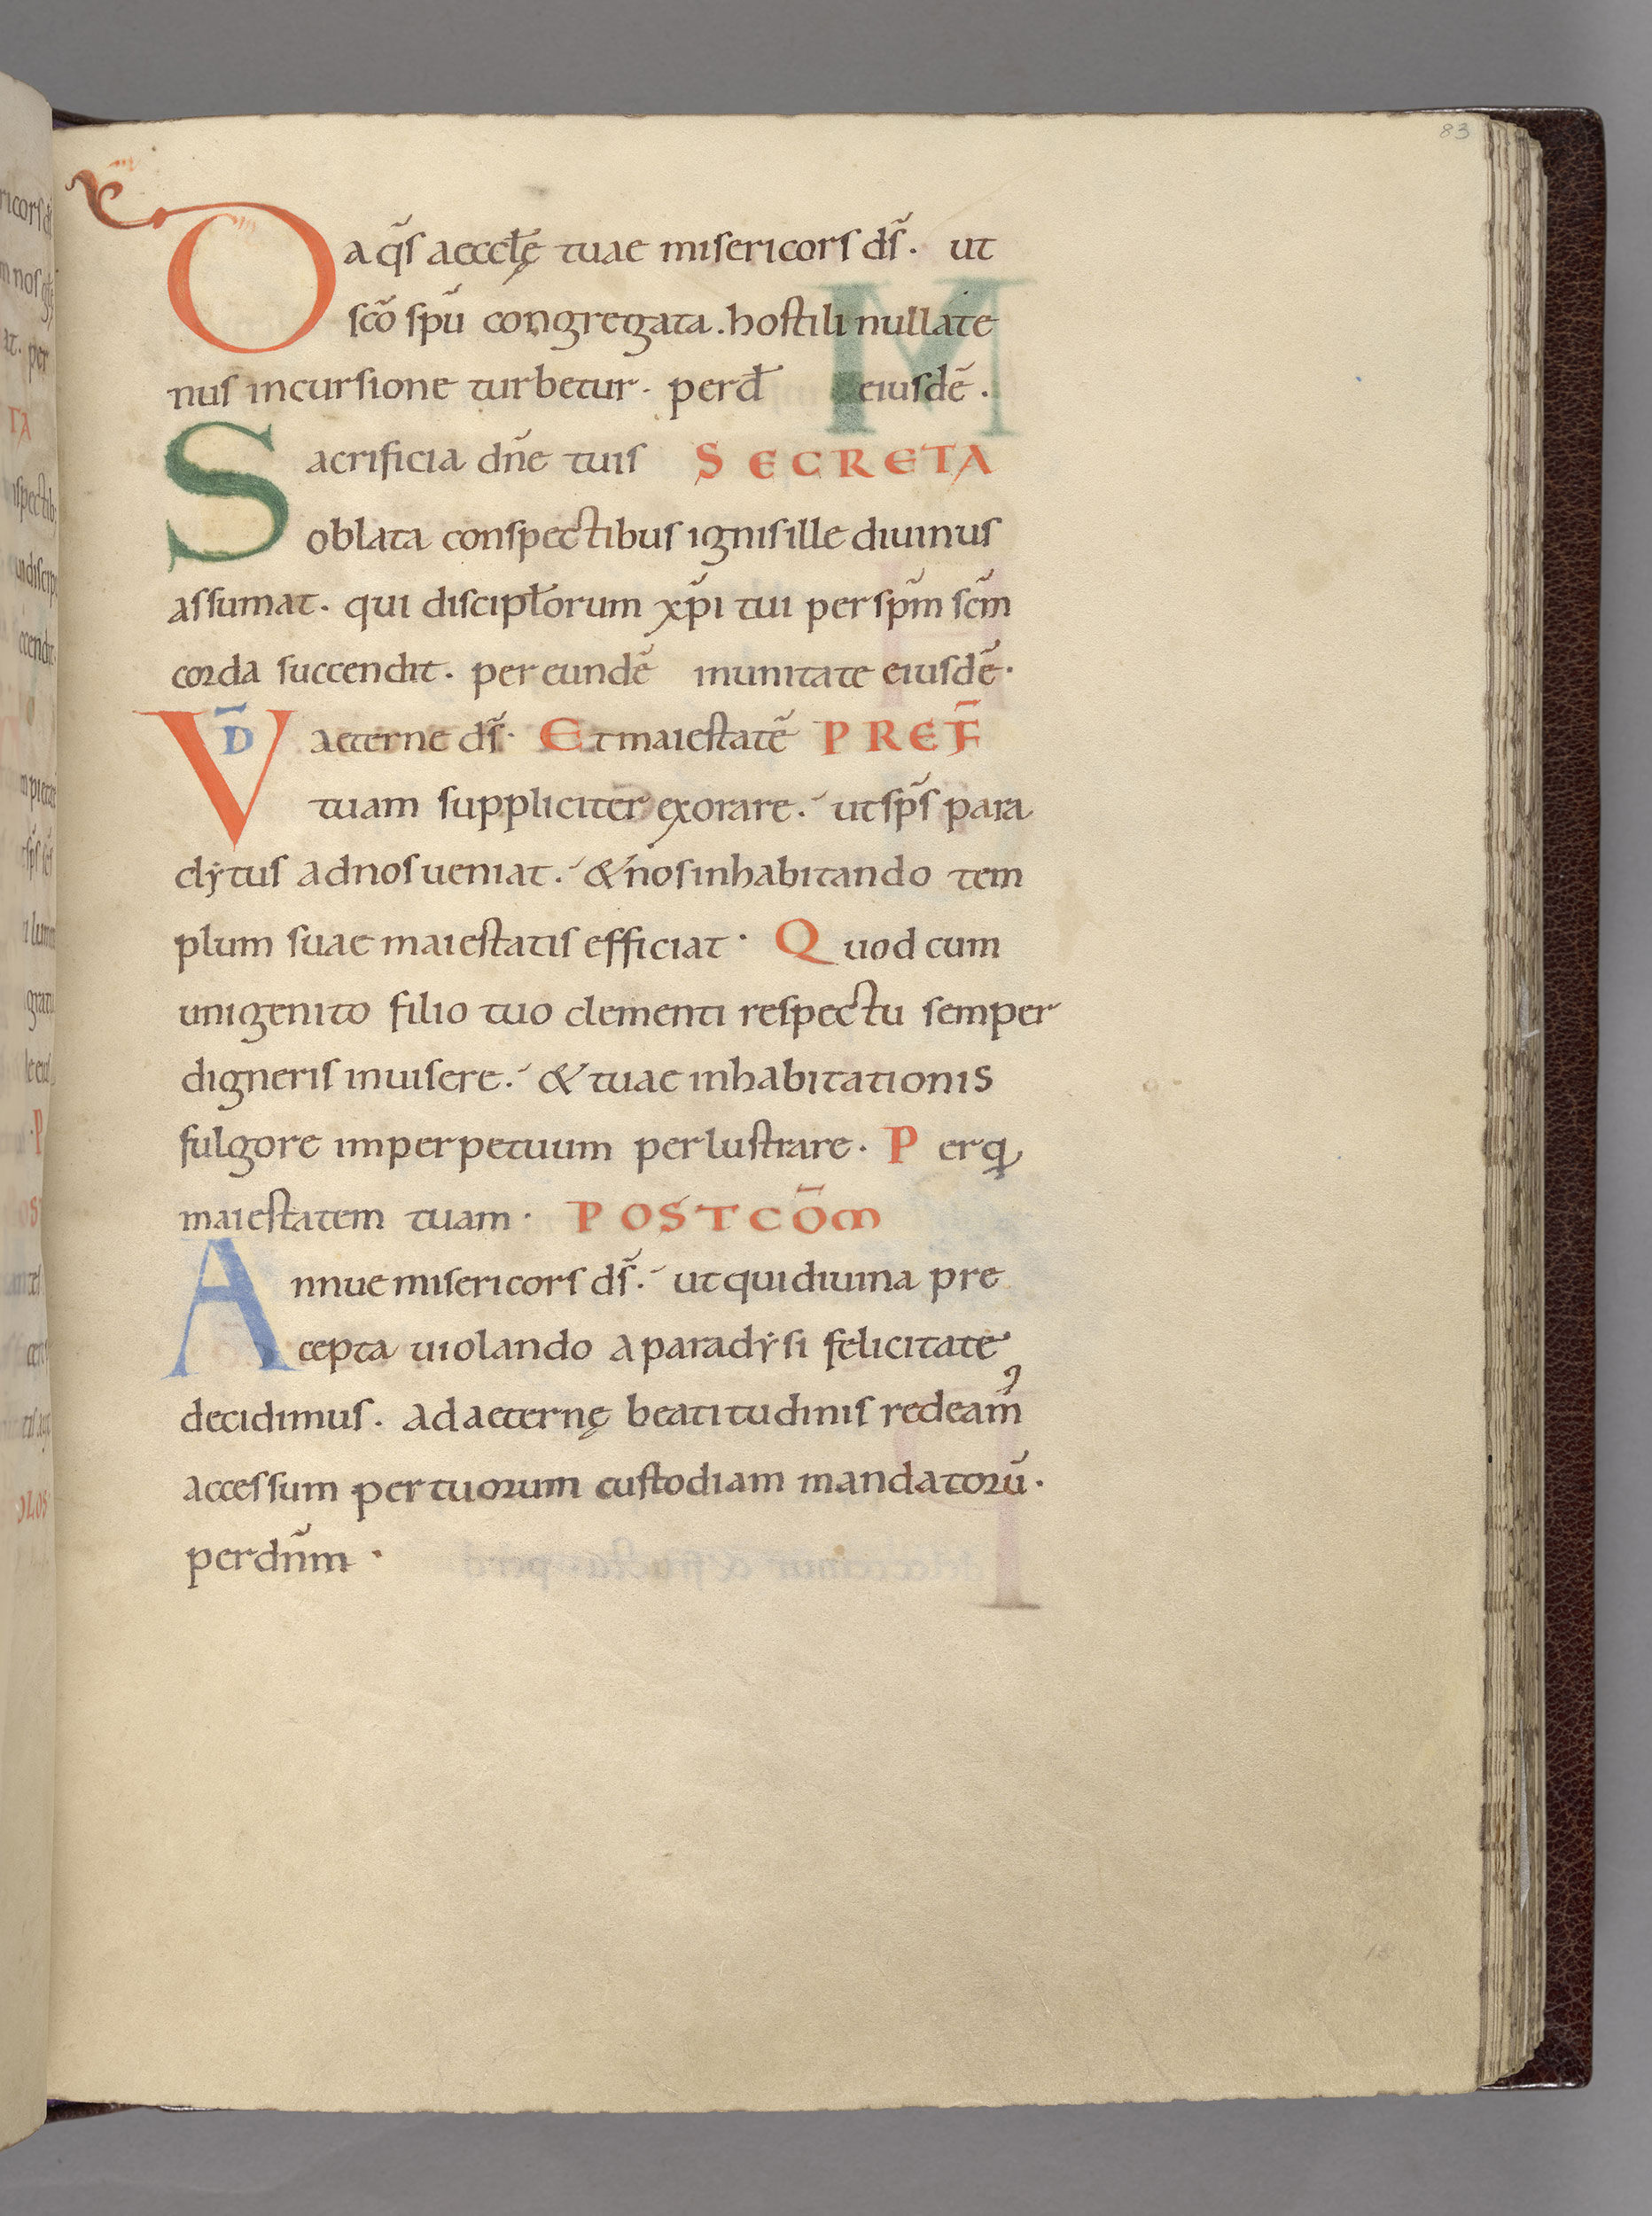 83
Da q̃s aeccłę tuae misericors ds̃. ut
sc̃o spũ congregata. hostili nullate
nus incursione turbetur. perd̄ eiusdē.
Sacrificia dñe tuis SECRETA
oblata conspectibus ignis ille diuinus
assumat. qui discipłorum xp̃i tui per sp̃m sc̃m
corda succendit. per eundē in unitate eiusdē.
VD̄ aeterne ds̃. Et maiestatē PREF̄
tuam suppliciter exorare. ut sp̃s para
clẏtus ad nos ueniat. & nos inhabitando tem
plum suae maiestatis efficiat. Quod cum
unigenito filio tuo clementi respectu semper
digneris inuisere. & tuae inhabitationis
fulgore imperpetuum perlustrare. Per q
maiestatem tuam. POSTCŌM
Annue misericors ds̃. ut qui diuina pre
cepta uiolando a paradẏsi felicitate
decidimus. ad aeternę beatitudinis redeam᾽
accessum per tuorum custodiam mandatorū.
per dñm.